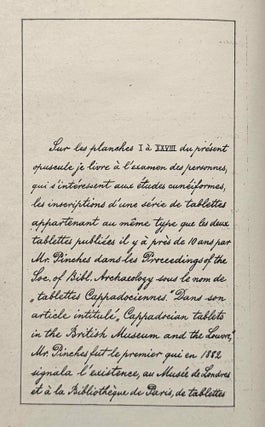 Sur les planches I à XXVIII du présent
opuscule je livre à l'examen des personnes,
qui s'intéressent aux études cunéiformes,
les inscriptions d'une série de tablettes
appartenant au même type que les deux
tablettes publiées il y à près de 10 ans par
Mr. Pinches dans les Proceedings of the
Soc. of Bibl. Archaeology sous le nom de
„tablettes Cappadociennes." Dans son
article intitulé, „Cappadocian tablets
in the British Museum and the Louvre,"
Mr. Pinches fut le premier qui en 1882
signala l'existence, au Musée de Londres
et à la Bibliothèque de Paris, de tablettes